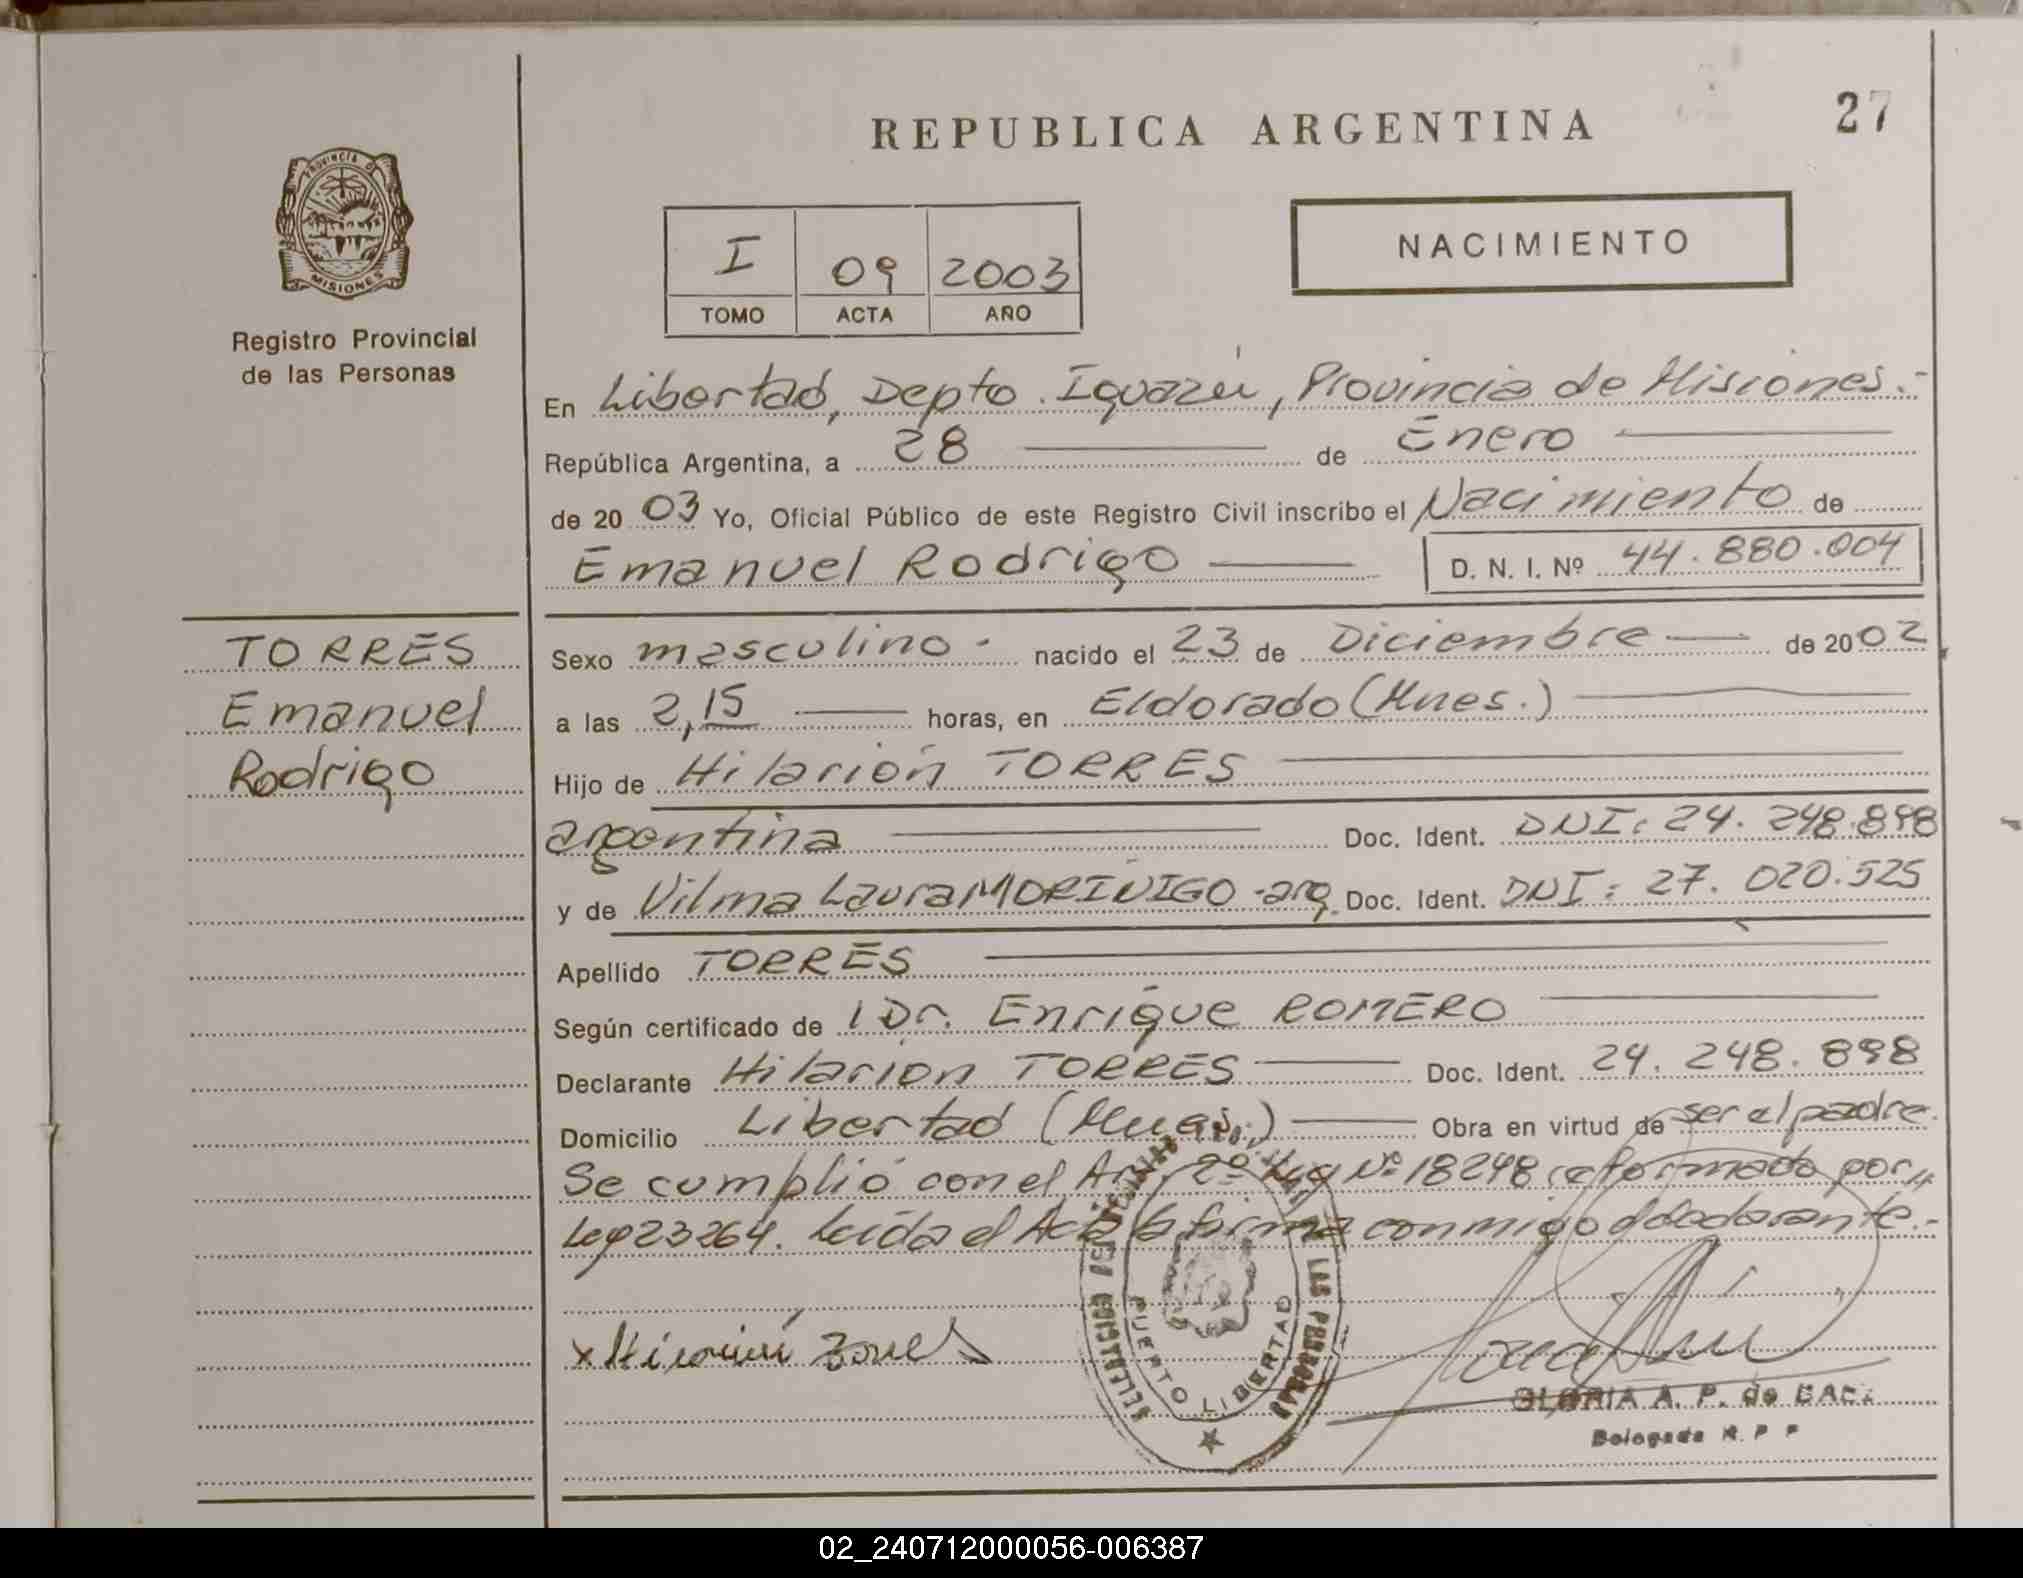 REPUBLICA ARGENTINA
27
PROVINCIA DE
MISIONES
Registro Provincial
de las Personas
I 09 2003
TOMO ACTA AÑO
NACIMIENTO
En Libertad, Depto. Iguazú, Provincia de Misiones.-
República Argentina, a 28 de Enero
de 2003 Yo, Oficial Público de este Registro Civil inscribo el Nacimiento de
Emanuel Rodrigo D. N. I. Nº 44.880.004
TORRES
Emanuel
Rodrigo
Sexo masculino. nacido el 23 de Diciembre de 2002
a las 2,15 horas, en Eldorado (Mnes.)
Hijo de Hilarión TORRES
argentina Doc. Ident. DNI: 24.248.898
y de Vilma Laura MORINIGO -arg. Doc. Ident. DNI: 27.020.525
Apellido TORRES
Según certificado de 1 Dr. Enrique ROMERO
Declarante Hilarión TORRES Doc. Ident. 24.248.898
Domicilio Libertad (Mnes.) Obra en virtud de ser el padre.
Se cumplió con el Art. 2º Ley Nº 18248 reformado por
Ley 23264. Leída el Acta la firma conmigo el declarante.-
LAS PERSONAS
PUERTO LIBERTAD
GLORIA A. P. de
Delegada R. P. P
02_240712000056-006387